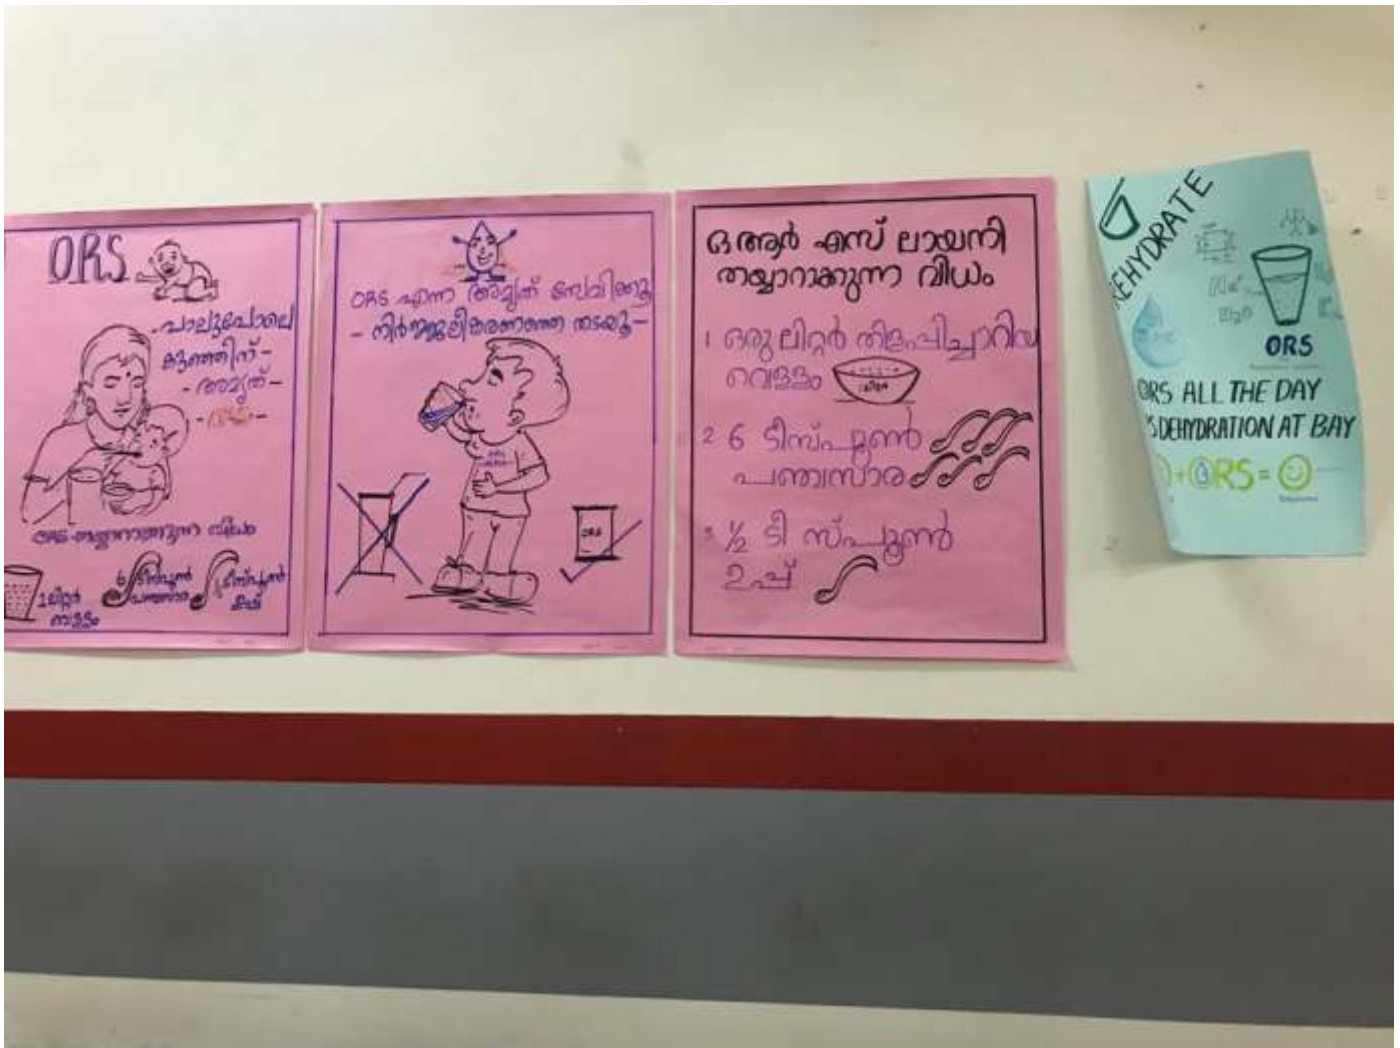 ORS
പാലുപോലെ
കുഞ്ഞിന് -
- അമൃത് -
ORS തയ്യാറാക്കുന്ന വിധം
1 ലിറ്റർ
വെള്ളം
6 ടീസ്പൂൺ
പഞ്ചസാര
ടീസ്പൂൺ
ഉപ്പ്
ORS എന്ന അമൃത് സേവിക്കൂ
- നിർജ്ജലീകരണത്തെ തടയൂ -
ORS
ഒ ആർ എസ് ലായനി
തയ്യാറാക്കുന്ന വിധം
1 ഒരു ലിറ്റർ തിളപ്പിച്ചാറിയ
വെള്ളം
2 6 ടീസ്പൂൺ
പഞ്ചസാര
3 ½ ടീ സ്പൂൺ
ഉപ്പ്
REHYDRATE
ORS
ORS ALL THE DAY
DEHYDRATION AT BAY
+ ORS =